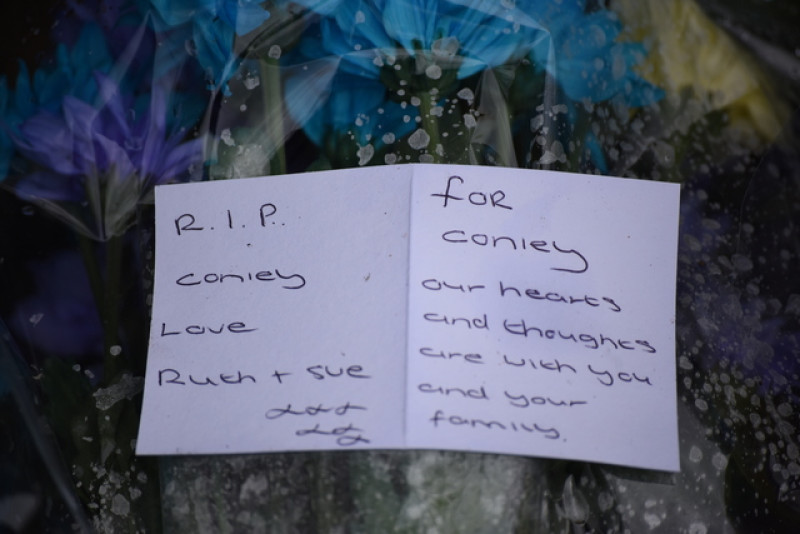 R.I.P.
Conley
Love
Ruth + Sue
xxx
xx
FOR
Conley
our hearts
and thoughts
are with you
and your
family.